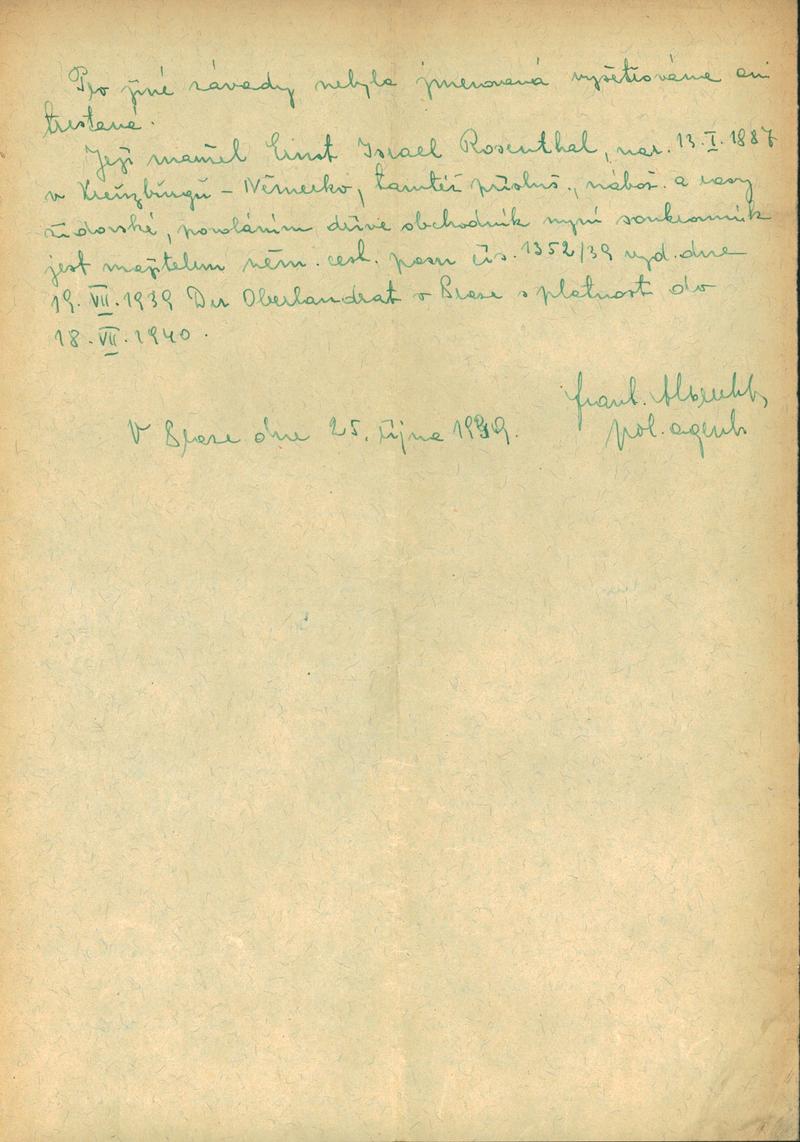 Pro jiné závady nebyla jmenovaná vyšetřována ani
trestaná.
Její manžel Ernst Israel Rosenthal, nar. 13.I.1887
v Kreuzburgu - Německo, tamtéž přísluš., nábož. a rasy
židovské, povoláním dříve obchodník nyní soukromník
jest majitelem něm. cest. pasu čís. 1352/39 vyd. dne
19.VII.1939 Der Oberlandrat v Praze s platnost do
18.VII.1940.
frant.
pol. agent.
V Praze dne 25. října 1939.